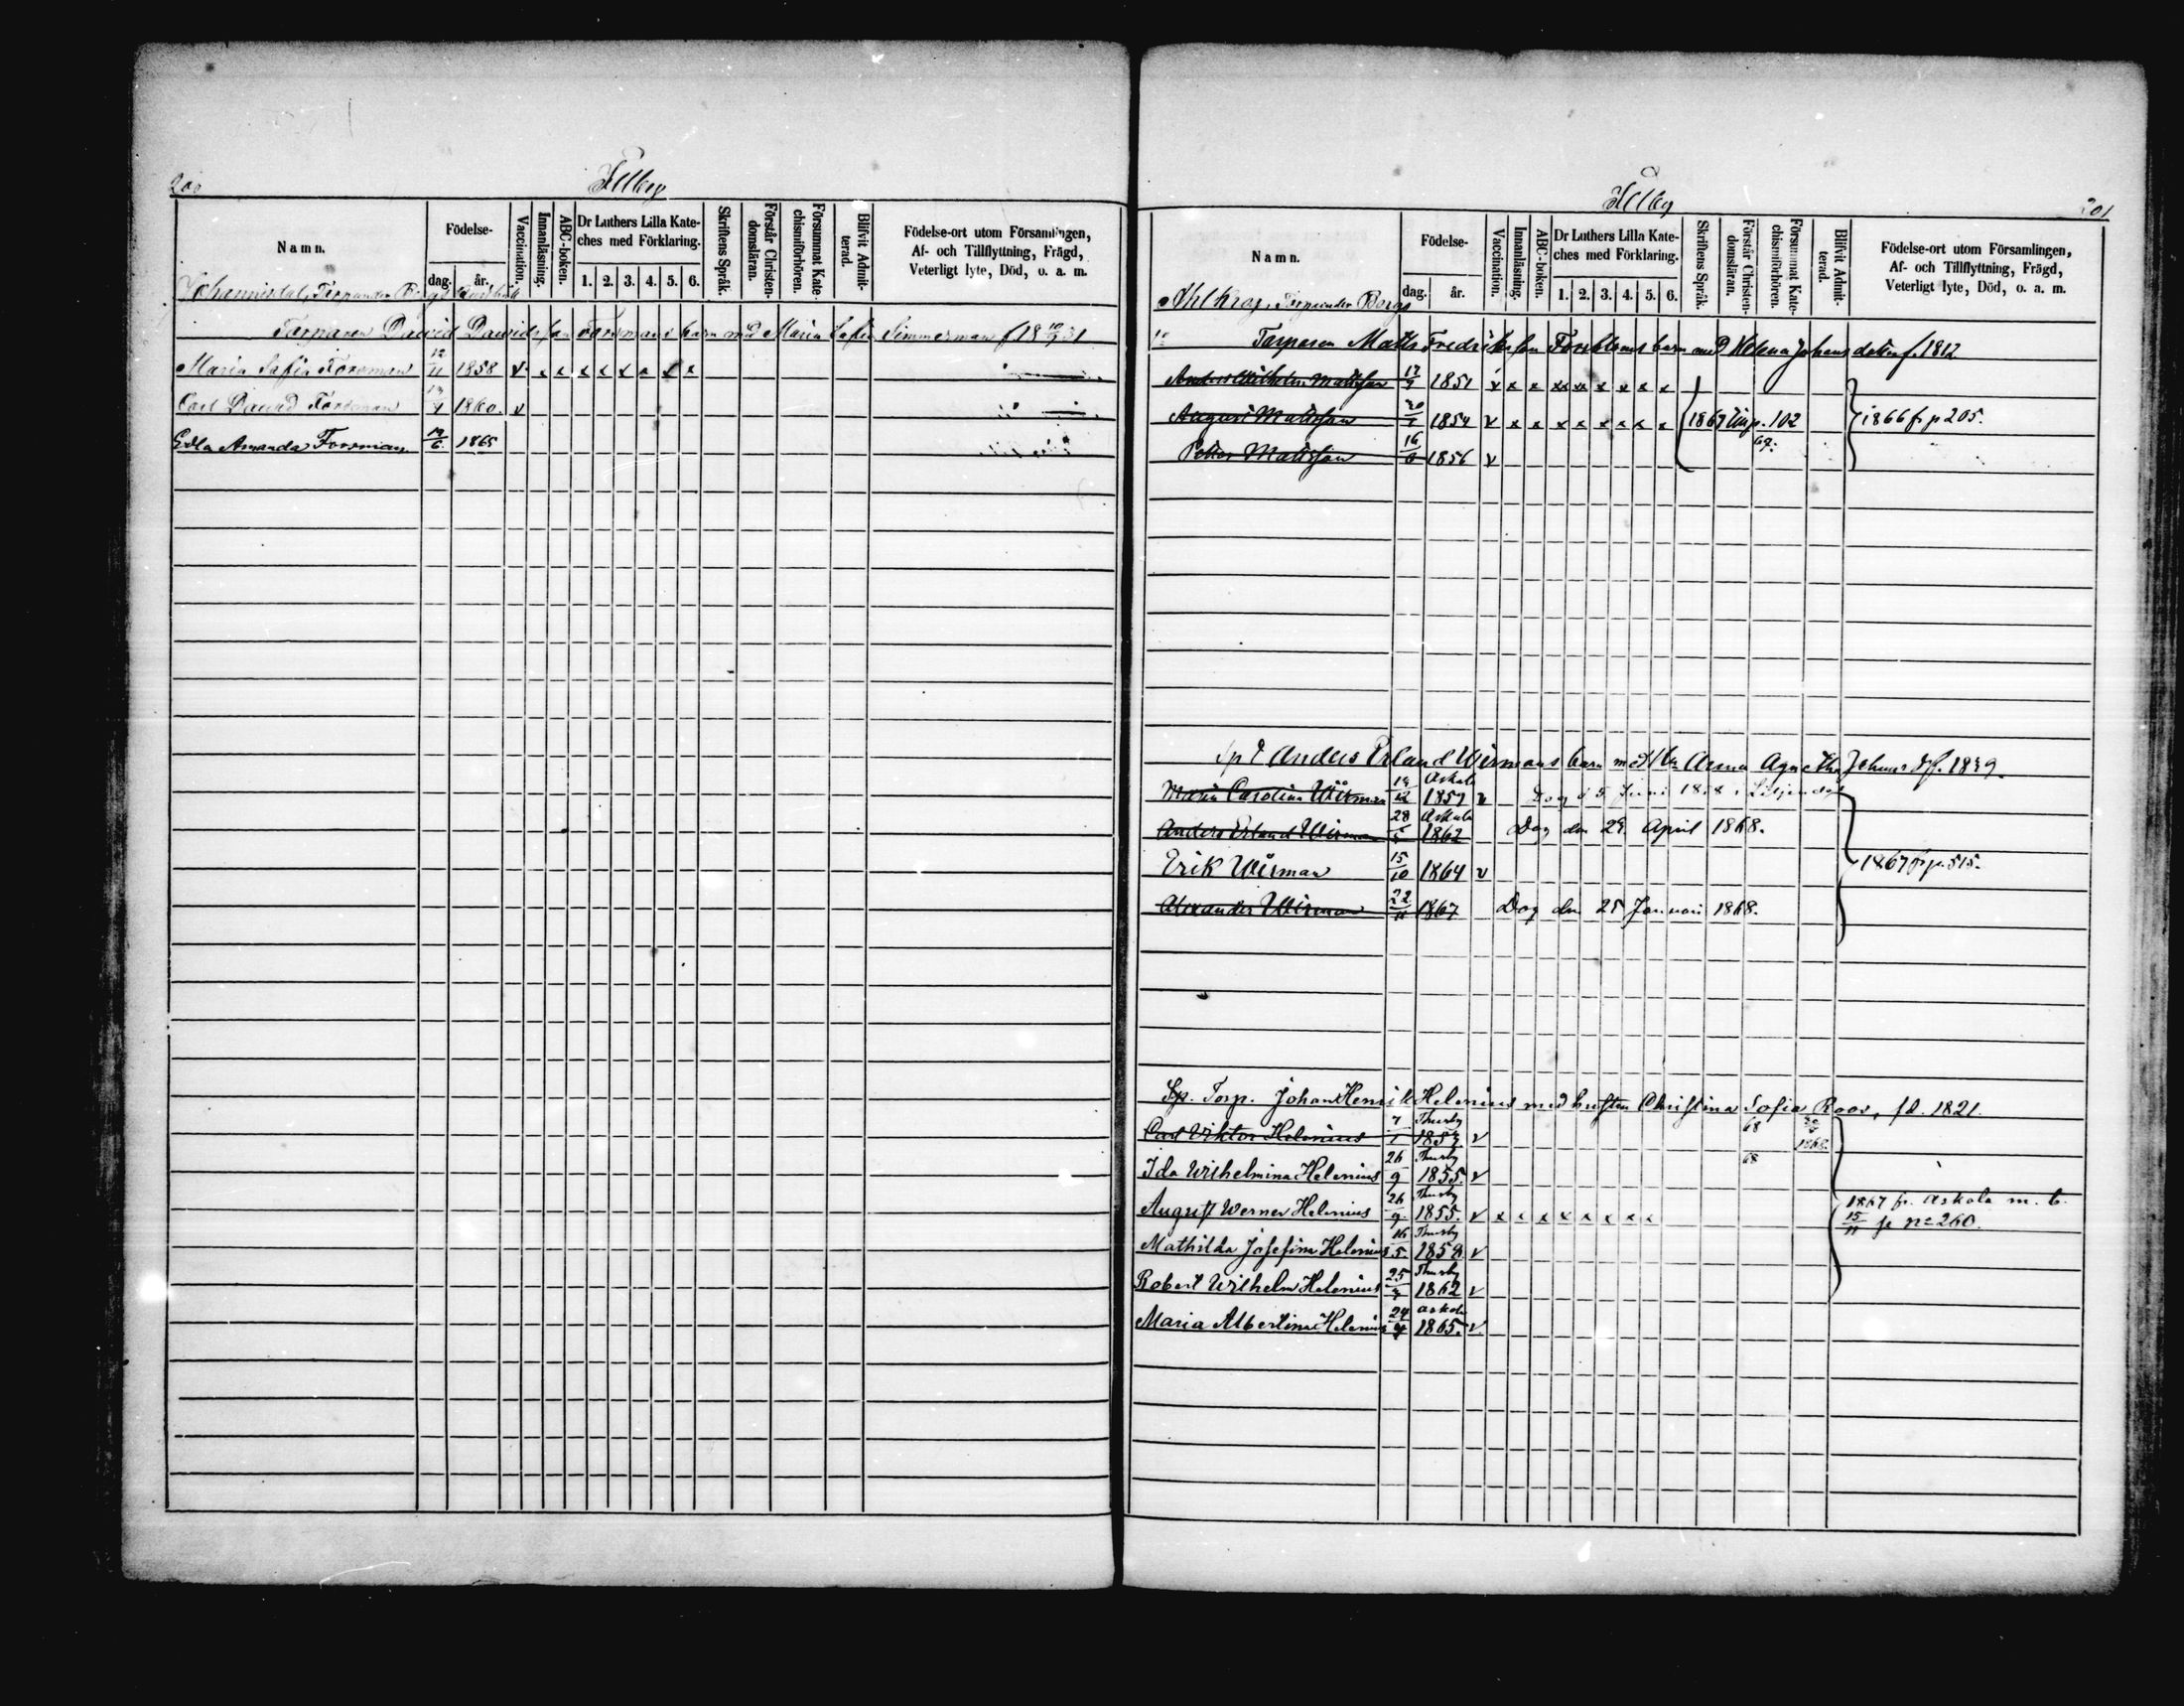 200
Illby
Namn.
Födelse-
dag.
år.
Vaccination.
Innanläsning.
ABC-boken.
Dr Luthers Lilla Kate-
ches med Förklaring.
1. 2. 3. 4. 5. 6.
Skriftens Språk.
Förstår Christen-
domsläran.
Försummat Kate-
chismiförhören.
Blifvit Admit-
terad.
Födelse-ort utom Församlingen,
Af- och Tillflyttning, Frägd,
Veterligt lyte, Död, o. a. m.
Johannisdal, Torp under
Torparen David Davidsson Forsmans barn med Maria Sofia Simmerman f 18 31
Maria Sofia Forsman 12/11 1858 v x x x x x x x x
Carl David Forsman 1860. v
Edla Amanda Forsman 19/6 1865
Illby
201
Namn.
Födelse-
dag.
år.
Vaccination.
Innanläsning.
ABC-boken.
Dr Luthers Lilla Kate-
ches med Förklaring.
1. 2. 3. 4. 5. 6.
Skriftens Språk.
Förstår Christen-
domsläran.
Försummat Kate-
chismiförhören.
Blifvit Admit-
terad.
Födelse-ort utom Församlingen,
Af- och Tillflyttning, Frägd,
Veterligt lyte, Död, o. a. m.
Torp under Borgs
Torparen Matts Fredriksson Forsbloms barn med Helena Johansdotter f. 1812
Anders Wilhelm Mattsson 1851 v x x x x x x x x
August Mattsson 1854 v x x x x x x x x 1867 p. 102 1866 fr p 205.
Petter Mattsson 16/6 1856 v 67.
Anders Erland Wirmans barn med Anna Agnetha Johans d f. 1839.
Maria Carolina Wirman 12 Askola 1859 v Dog d 5 Juni 1868 i Liljendal
Anders Erland Wirman 28/5 Askola 1862 Dog den 29 April 1868.
Erik Wirman 15/10 1864 v 1867 fr p. 515.
Alexander Wirman 22/11 1867 Dog den 25 Januari 1868.
Sp. Torp. Johan Henrik Helenius med hustru Christina Sofia Roos, fd. 1821.
Carl Viktor Helenius 7/1 Thusby 1853 v 68 1868
Ida Wilhelmina Helenius 26/9 Thusby 1855. v 68
August Werner Helenius 26/9 Thusby 1855. v x x x x x x x x 1867 fr. Askola m. b.
15/11 p no 260.
Mathilda Josefina Helenius 16/5 Thusby 1859. v
Robert Wilhelm Helenius 25 Thusby 1862 v
Maria Albertina Helenius 24 Askola 1865. v